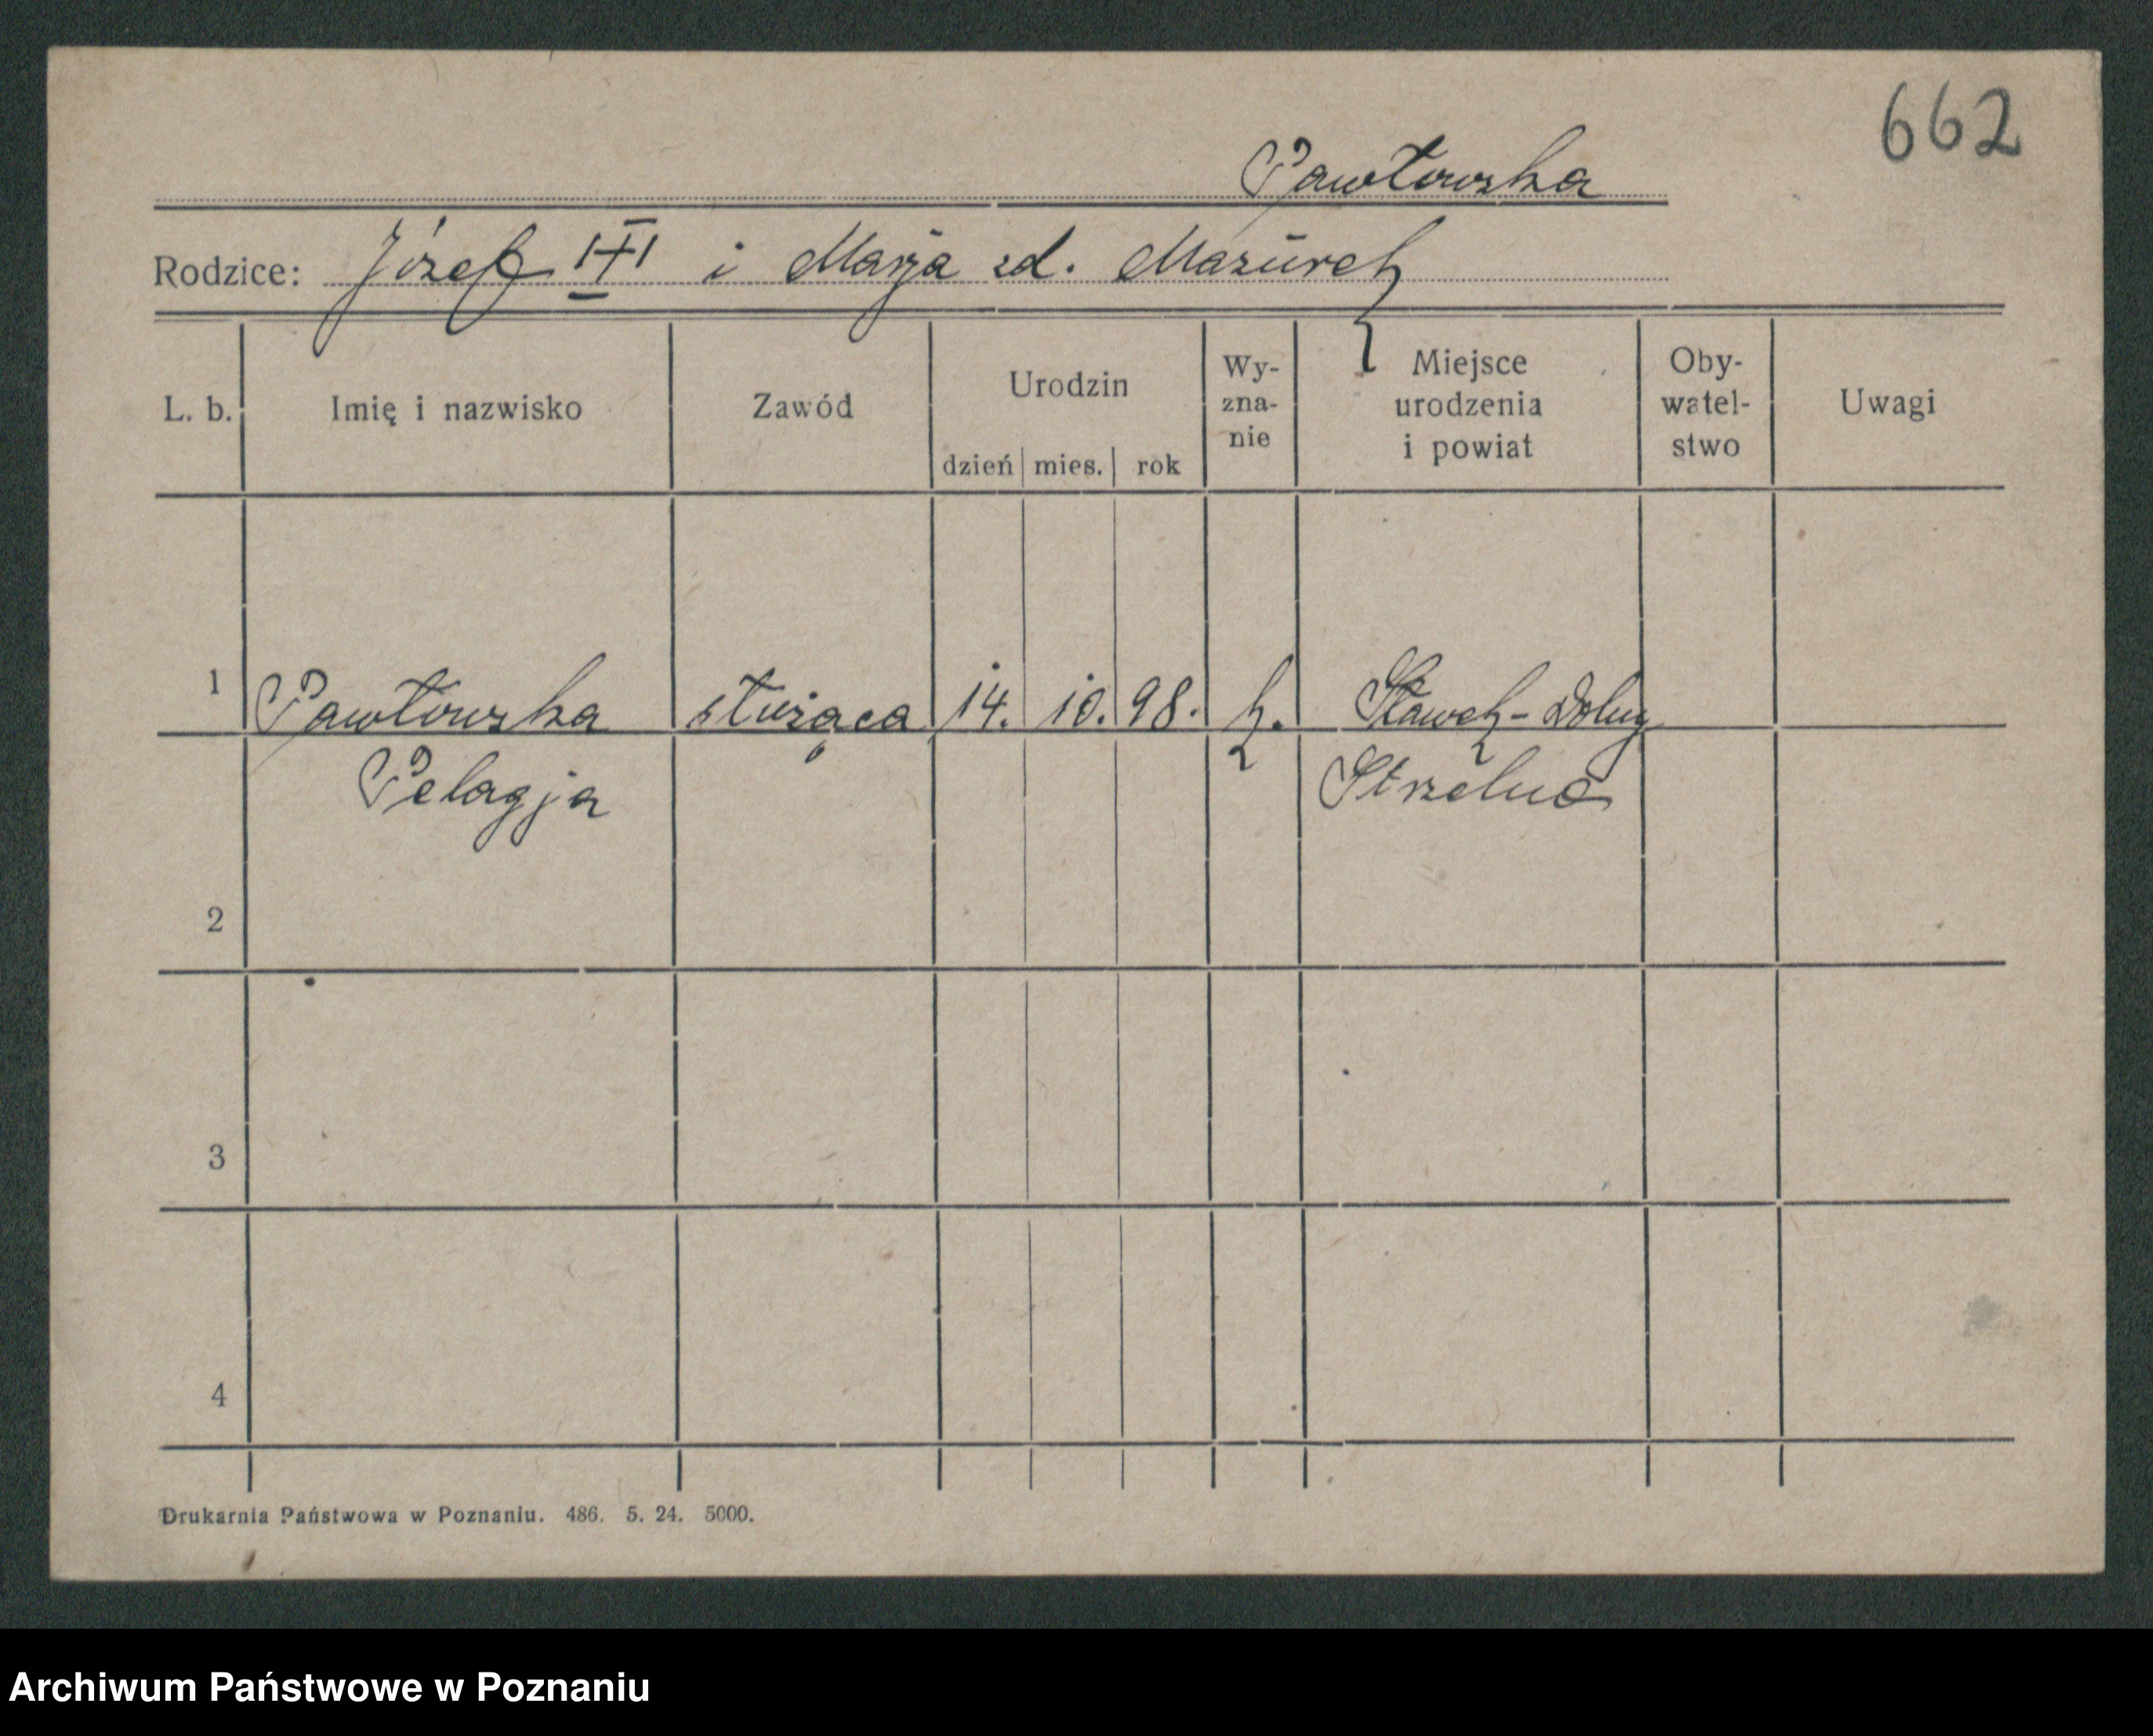 662
Pawłowska
Rodzice: Józef III i Marja zd. Mazurek
L. b. Imię i nazwisko Zawód Urodzin dzień mies. rok Wy-zna-nie Miejsce urodzenia i powiat Oby-watel-stwo Uwagi
1 Pawłowska służąca 14. 10. 98. k. Sławsk-Dolny
Pelagja Strzelno
2
3
4
Drukarnia Państwowa w Poznaniu. 486. 5. 24. 5000.
Archiwum Państwowe w Poznaniu